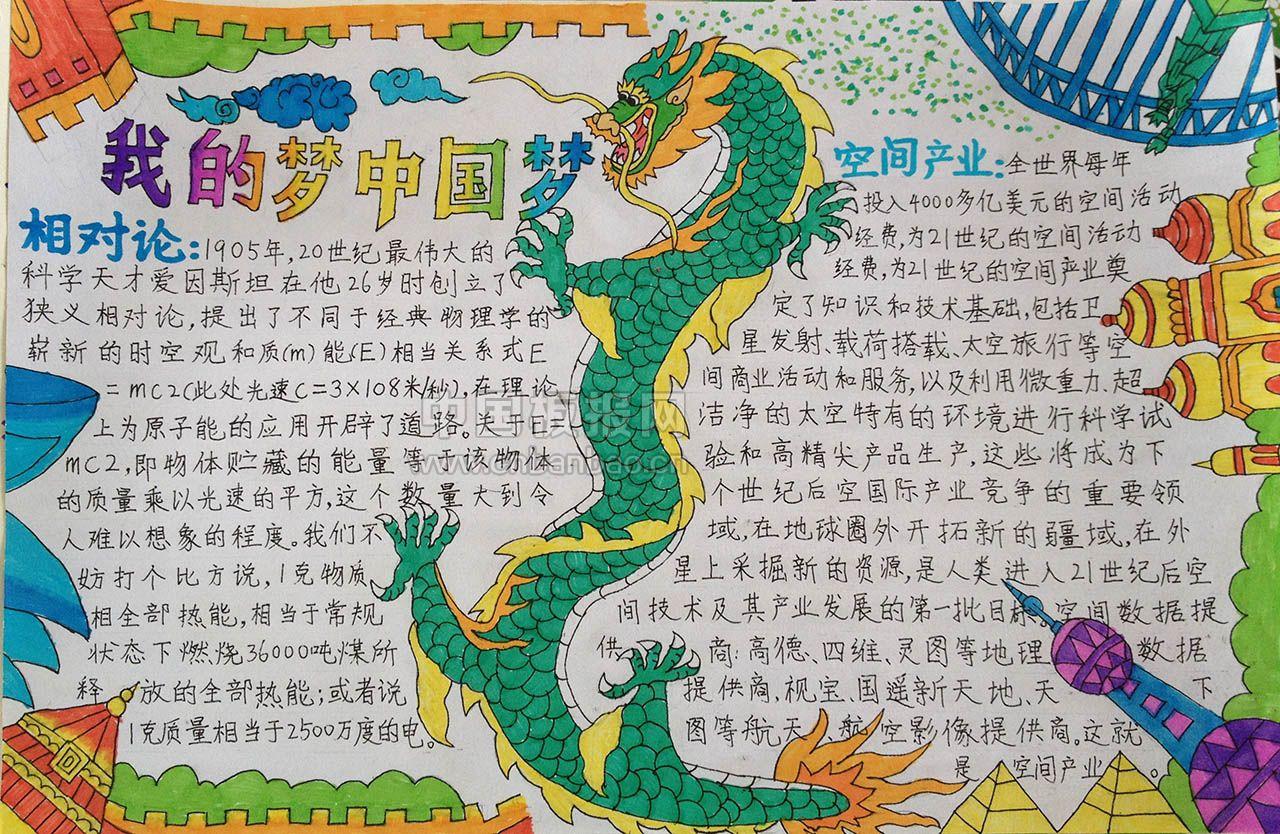 我的梦中国梦
相对论:1905年,20世纪最伟大的
科学天才爱因斯坦在他26岁时创立了
狭义相对论,提出了不同于经典物理学的
崭新的时空观和质(m)能(E)相当关系式E
=mc2(此处光速C=3×108米/秒),在理论
上为原子能的应用开辟了道路。关于E=
mc2,即物体贮藏的能量等于该物体
的质量乘以光速的平方,这个数量大到令
人难以想象的程度。我们不
妨打个比方说,1克物质
相全部热能,相当于常规
状态下燃烧36000吨煤所
释放的全部热能;或者说
1克质量相当于2500万度的电。
空间产业:全世界每年
投入4000多亿美元的空间活动
经费,为21世纪的空间活动
经费,为21世纪的空间产业奠
定了知识和技术基础,包括卫
星发射、载荷搭载、太空旅行等空
间商业活动和服务,以及利用微重力、超
洁净的太空特有的环境进行科学试
验和高精尖产品生产,这些将成为下
个世纪后空国际产业竞争的重要领
域,在地球圈外开拓新的疆域,在外
星上采掘新的资源,是人类进入21世纪后空
间技术及其产业发展的第一批目标。空间数据提
供商:高德、四维、灵图等地理数据
提供商,视宝、国遥新天地、天下
图等航天、航空影像提供商。这就
是空间产业。
中国板报网
www.chibanbao.cn